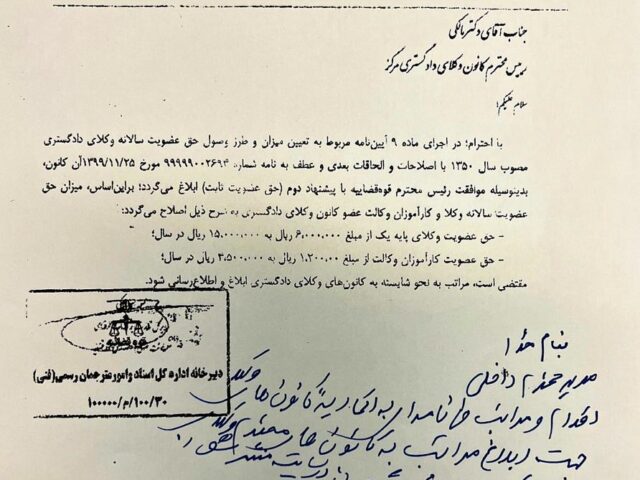 جناب آقای دکتر مالکی
رییس محترم کانون وکلای دادگستری مرکز
سلام علیکم؛
با احترام؛ در اجرای ماده ۹ آیین‌نامه مربوط به تعیین میزان و طرز وصول حق عضویت سالانه وکلای دادگستری
مصوب سال ۱۳۵۰ با اصلاحات و الحاقات بعدی و عطف به نامه شماره ۹۹۹۹۹۰۰۲۶۹۴ مورخ ۱۳۹۹/۱۱/۲۵ آن کانون،
بدینوسیله موافقت رئیس محترم قوه‌قضاییه با پیشنهاد دوم (حق عضویت ثابت) ابلاغ می‌گردد؛ براین‌اساس، میزان حق
عضویت سالانه وکلا و کارآموزان وکالت عضو کانون وکلای دادگستری به شرح ذیل اصلاح می‌گردد:
- حق عضویت وکلای پایه یک از مبلغ ۶,۰۰۰,۰۰۰ ریال به ۱۵,۰۰۰,۰۰۰ ریال در سال؛
- حق عضویت کارآموزان وکالت از مبلغ ۱,۲۰۰,۰۰ ریال به ۳,۵۰۰,۰۰۰ ریال در سال؛
مقتضی است، مراتب به نحو شایسته به کانون‌های وکلای دادگستری ابلاغ و اطلاع‌رسانی شود.
دبیرخانه اداره کل اسناد وامور مترجمان رسمی(فنی)
۱۰۰۰۰۰/م/۱۰۰/۳۰
بنام خدا
مدیر محترم داخلی
اقدام و مراتب طی نامه‌ای به اتحادیه کانون‌های وکلا
جهت ابلاغ مراتب به کانون‌های محترم
در سایت